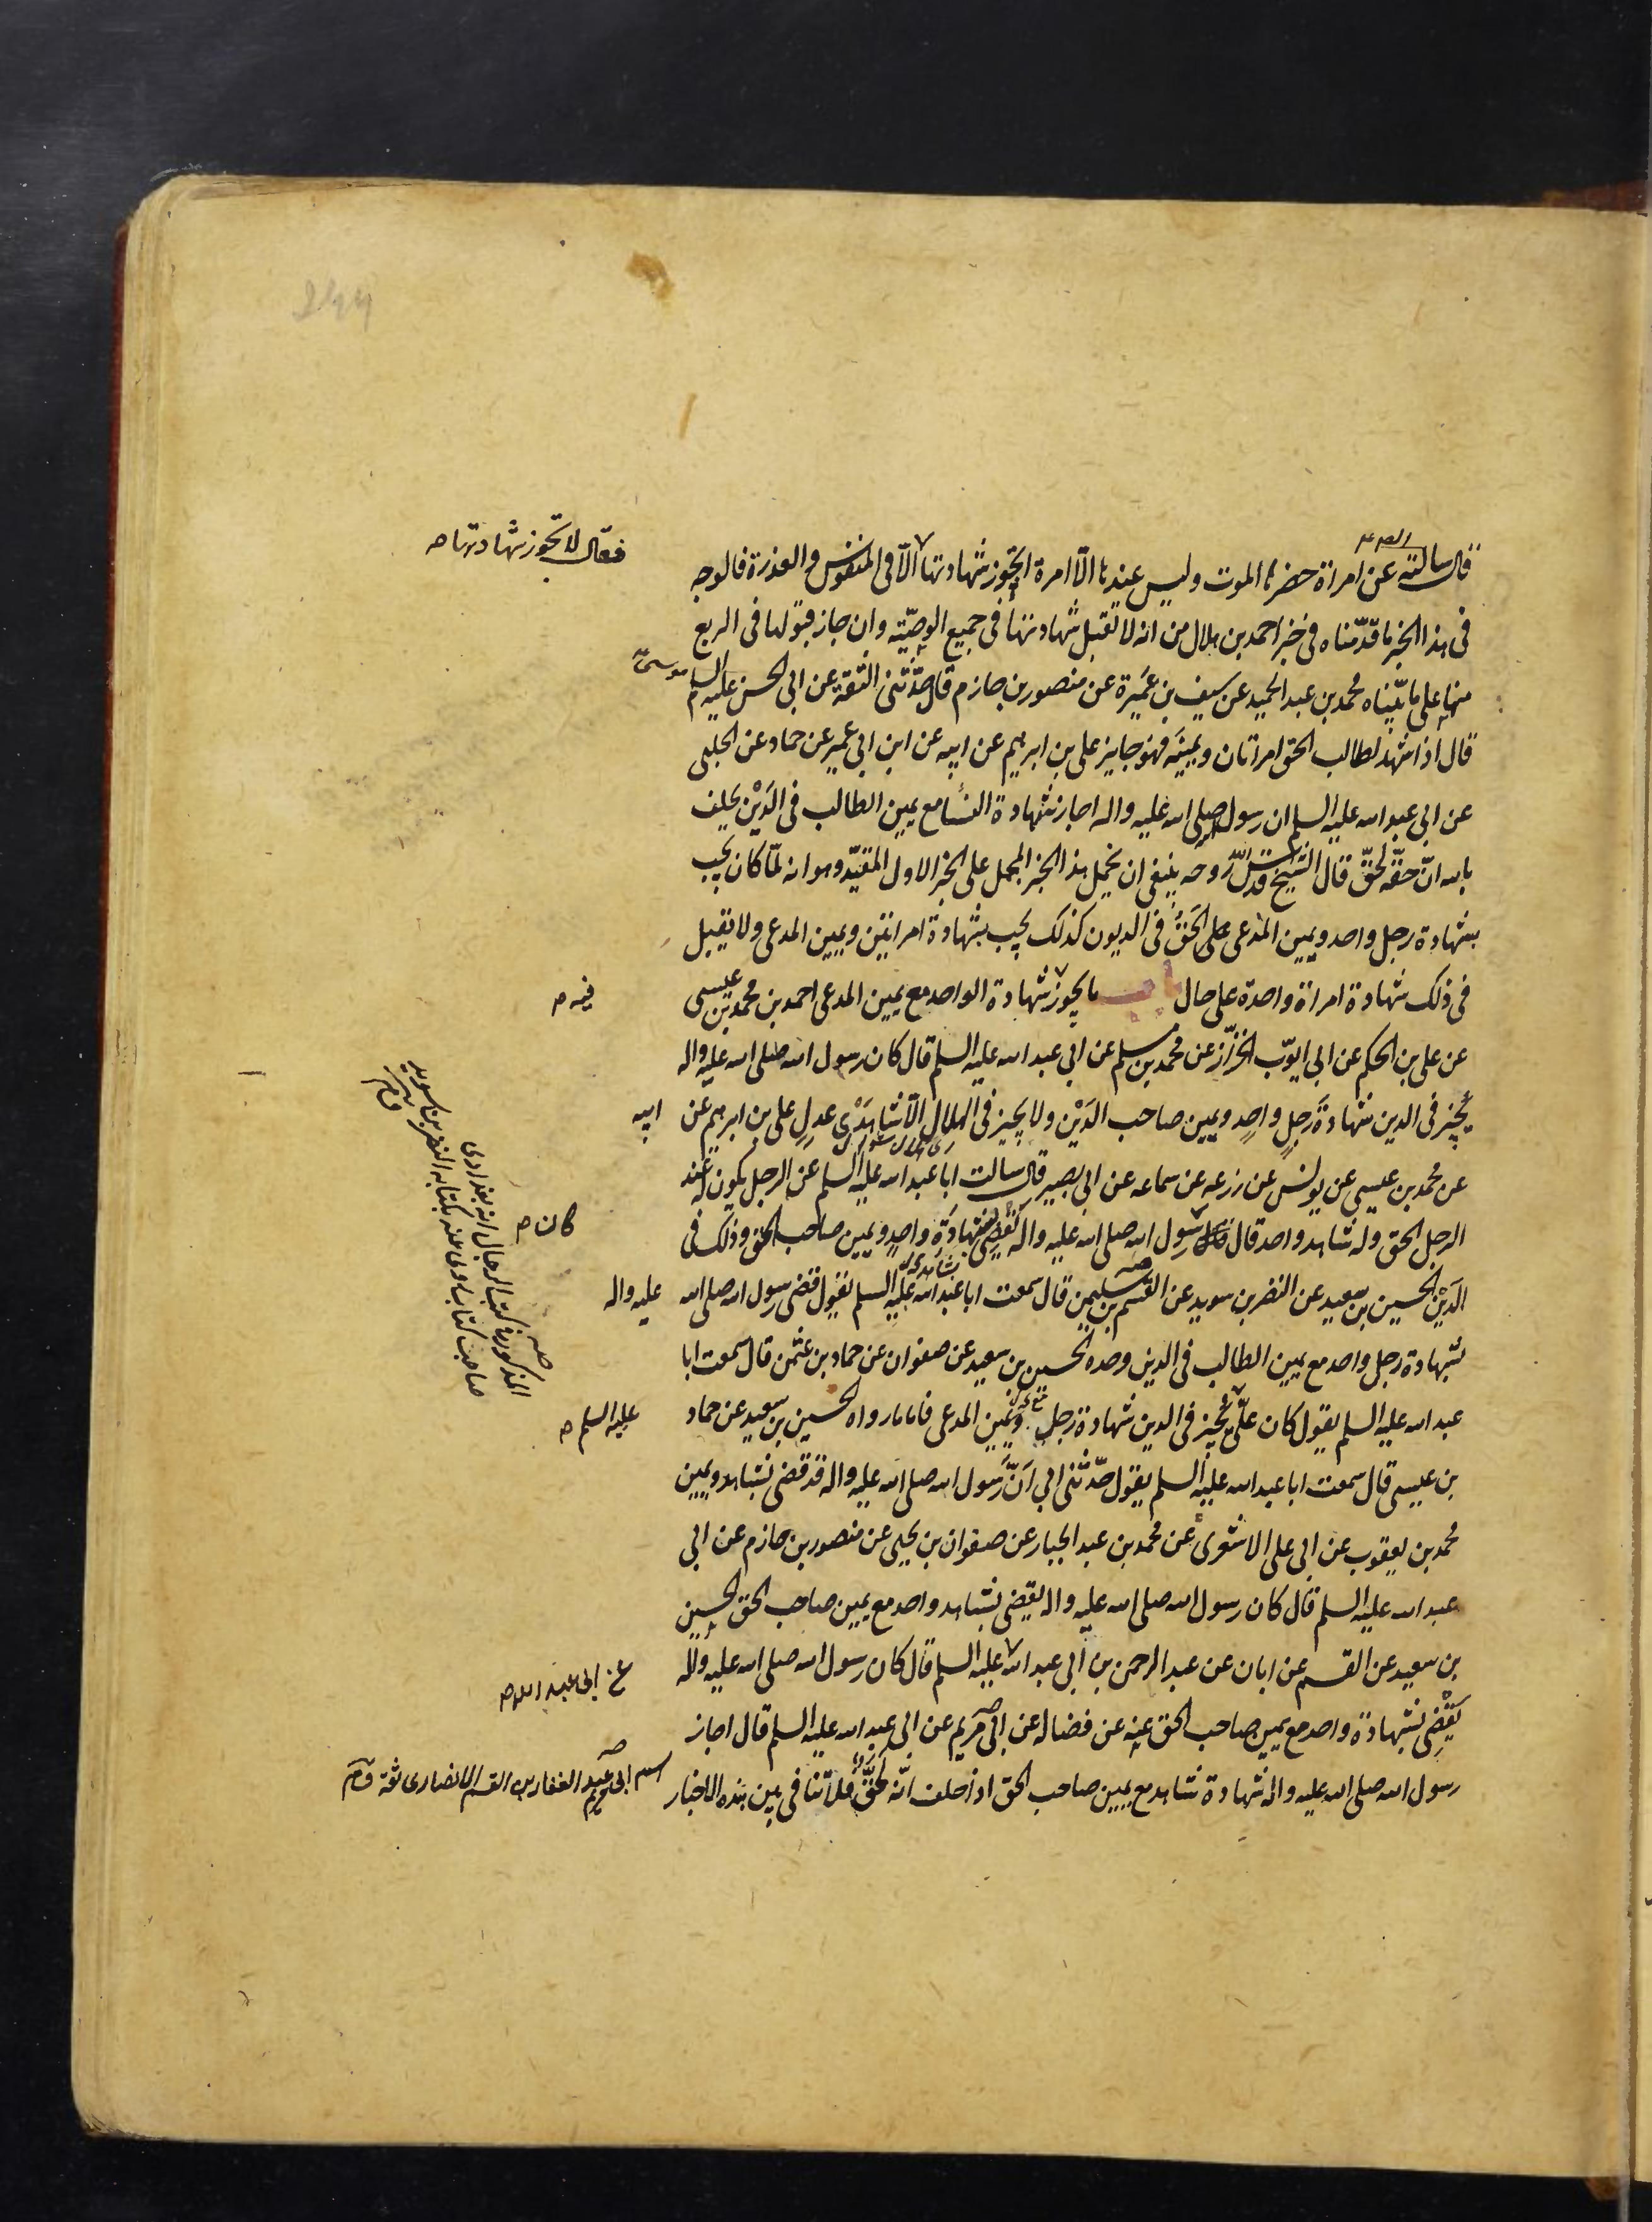 قال سالته عن امراة حضرها الموت وليس عندها الّا امراة اتجوز شهادتها الّا فى المنفوس والعذرة فالوجه
فقال لا تجوز شهادتها صح
فى هذا الخبر ما قدّمناه فى خبر احمد بن هلال من انه لا تقبل شهادتها فى جميع الوصيّة وان جاز قبولها فى الربع
منها على ما بيّناه محمد بن عبد الحميد عن سيف بن عَميرة عن منصور بن حازم قال حدّثنى الثقة عن ابى الحسن عليه السلم
موسى
قال اذا شهد لطالب الحق امراتان ويمينه فهو جايز على بن ابرهيم عن ابيه عن ابن ابى عمير عن حماد عن الحلبى
عن ابى عبد الله عليه السلم ان رسول الله صلى الله عليه واله اجاز شهادة النسا مع يمين الطالب فى الدَيْن يحلف
بالله انّ حقّه لحقّ قال الشيخ قدس روحه ينبغى ان نحمل هذا الخبر المجمل على الخبر الاول المقيّد وهو انه لمّا كان يجب
بشهادة رجل واحد ويمين المدّعى على الحق فى الديون كذلك يجب بشهادة امراتين ويمين المدعى ولا تقبل
فى ذلك شهادة امراة واحدة على حال باب ما يجوز شهادة الواحد مع يمين المدعى احمد بن محمد بن عيسى
فيه صح
عن على بن الحكم عن ابى ايوّب الخزّاز عن محمد بن مسلم عن ابى عبد الله عليه السلم قال كان رسول الله صلى الله عليه واله
يُجيز فى الدين شهادةَ رَجلٍ واحدٍ ويمين صاحب الدَيْن ولا يجيز فى الهلال الّا شاهدَىْ عدلٍ على بن ابرهيم عن
ابيه
عن محمد بن عيسى عن يونس عن زرعه عن سماعه عن ابى بصير قال سالت ابا عبد الله عليه السلم عن الرجل يكون له عند
الرجل الحق وله شاهد واحد قال فقال رسول الله صلى الله عليه واله يقضى بشهادَة واحدٍ ويمين صاحب الحق وذلك فى
كان صح
الدَيْن الحسين بن سعيد عن النضر بن سويد عن القسم بن سليمن قال سمعت ابا عبد الله عليه السلم يقول قضى رسول الله صلى الله
عليه واله
بشهادة رجل واحد مع يمين الطالب فى الدين وحده الحسين بن سعيد عن صفوان عن حماد بن عثمن قال سمعت ابا
عبد الله عليه السلم يقول كان علىّ يُجيز فى الدين شهادة رَجلٍ ويَمين المدعى فاما ما رواه الحسين بن سعيد عن حماد
عليه السلم صح
بن عيسى قال سمعت ابا عبد الله عليه السلم يقول حدّثنى ابى انّ رسول الله صلى الله عليه واله قد قضى بشاهد ويمين
محمد بن يعقوب عن ابى على الاشعرى عن محمد بن عبد الجبار عن صفوان بن يحيى عن منصور بن حازم عن ابى
عبد الله عليه السلم قال كان رسول الله صلى الله عليه واله يقضى بشاهد واحد مع يمين صاحب الحق الحسين
بن سعيد عن القسم عن ابان عن عبد الرحمن بن ابى عبد الله عليه السلم قال كان رسول الله صلى الله عليه واله
عن ابى عبد الله صح
يَقْضِى بشهادة واحد مع يمين صاحب الحق عنه عن فضاله عن ابى مريم عن ابى عبد الله عليه السلم قال اجاز
رسول الله صلى الله عليه واله شهادة شاهد مع يمين صاحب الحق اذا حلف انّه لَحَقٌّ فلا تنافى بين هذه الاخبار
اسم ابى مريم عبد الغفار بن القسم الانصارى ثقة
المذكور فى كتب الرجال انه بغدادى
صاحب كتاب روى عنه بكتابه النضر بن سويد